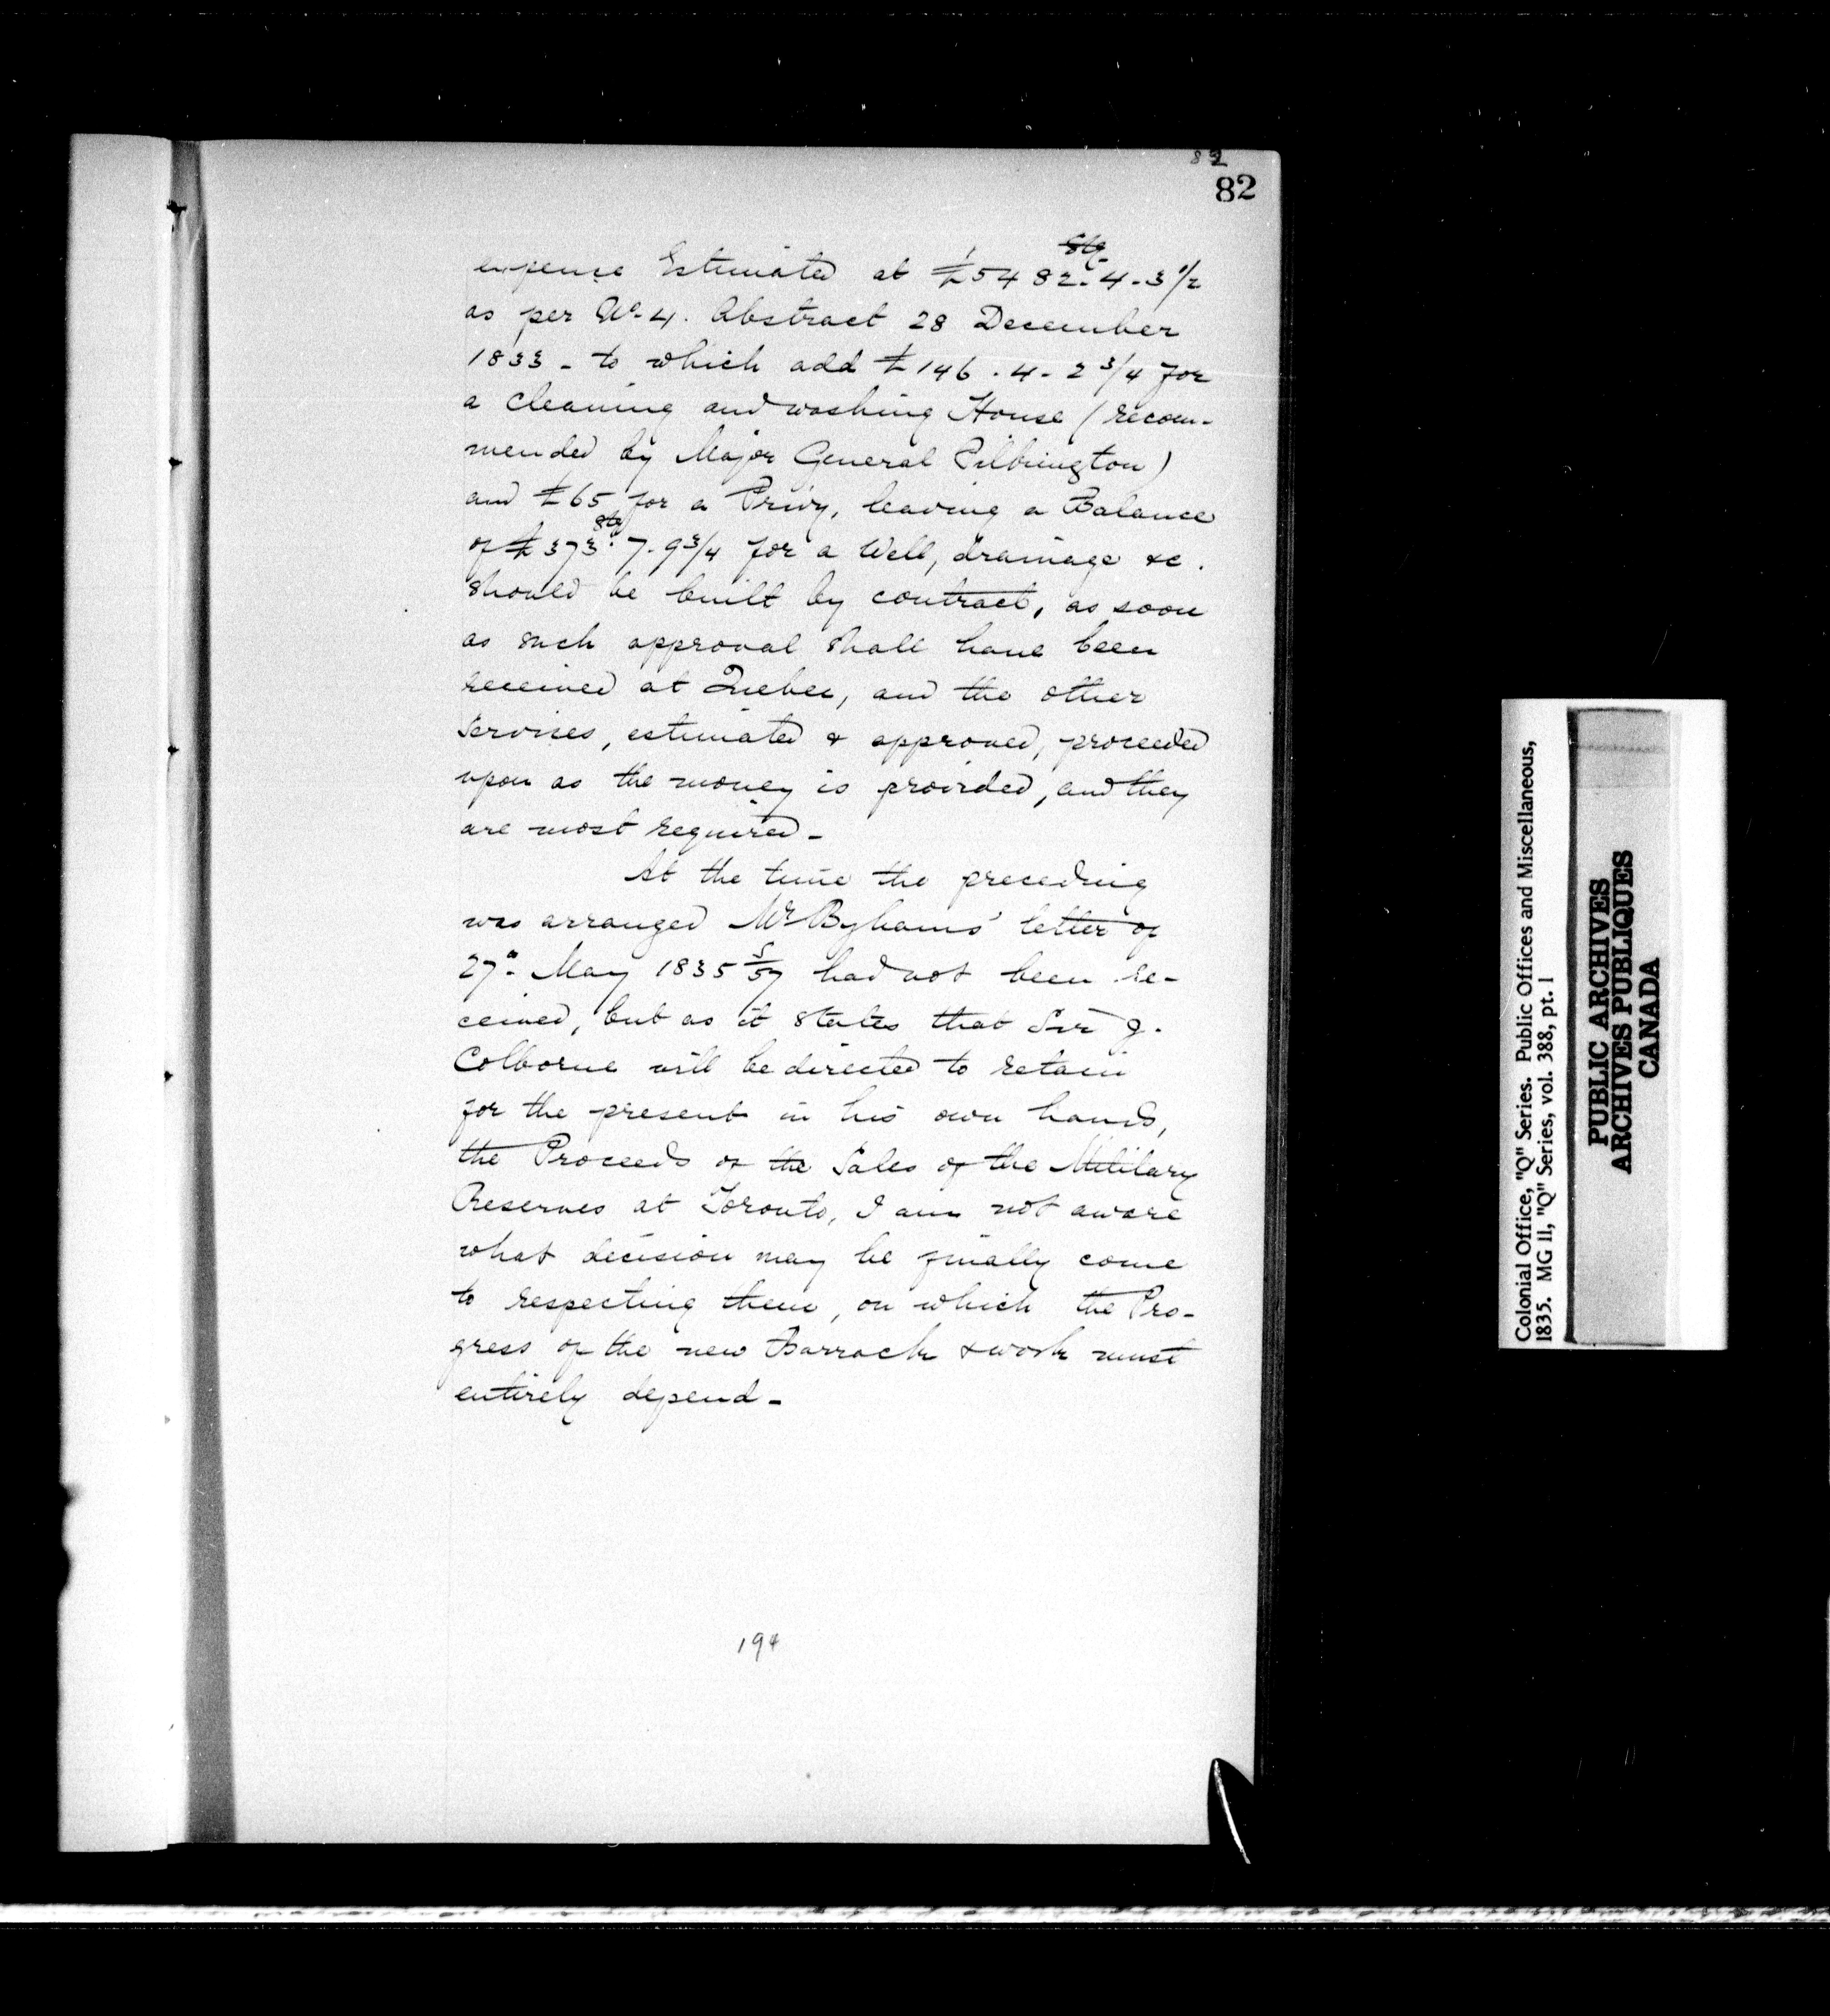 82
82
Stg
expense Estimated at £5482.4.3 1/2
as per No. 4. Abstract 28 December
1833 - to which add £146.4.2 3/4 for
a cleaning and washing House (recom-
mended by Major General Pilkington)
and £65 for a Privy, leaving a Balance
Stg
of £373.7.9 3/4 for a Well, drainage &c.
should be built by contract, as soon
as such approval shall have been
received at Quebec, and the other
Services, estimated & approved, proceeded
upon as the money is provided, and they
are most required -
At the time the preceding
was arranged Mr Byhams' letter of
27th May 1835 S/57 had not been re-
ceived, but as it states that Sir J.
Colborne will be directed to retain
for the present in his own hands,
the Proceeds of the Sales of the Military
Reserves at Toronto, I am not aware
what decision may be finally come
to respecting them, on which the Pro-
gress of the new Barrack & work must
entirely depend -
194
Colonial Office, "Q" Series. Public Offices and Miscellaneous,
1835. MG 11, "Q" Series, vol. 388, pt. 1
PUBLIC ARCHIVES
ARCHIVES PUBLIQUES
CANADA